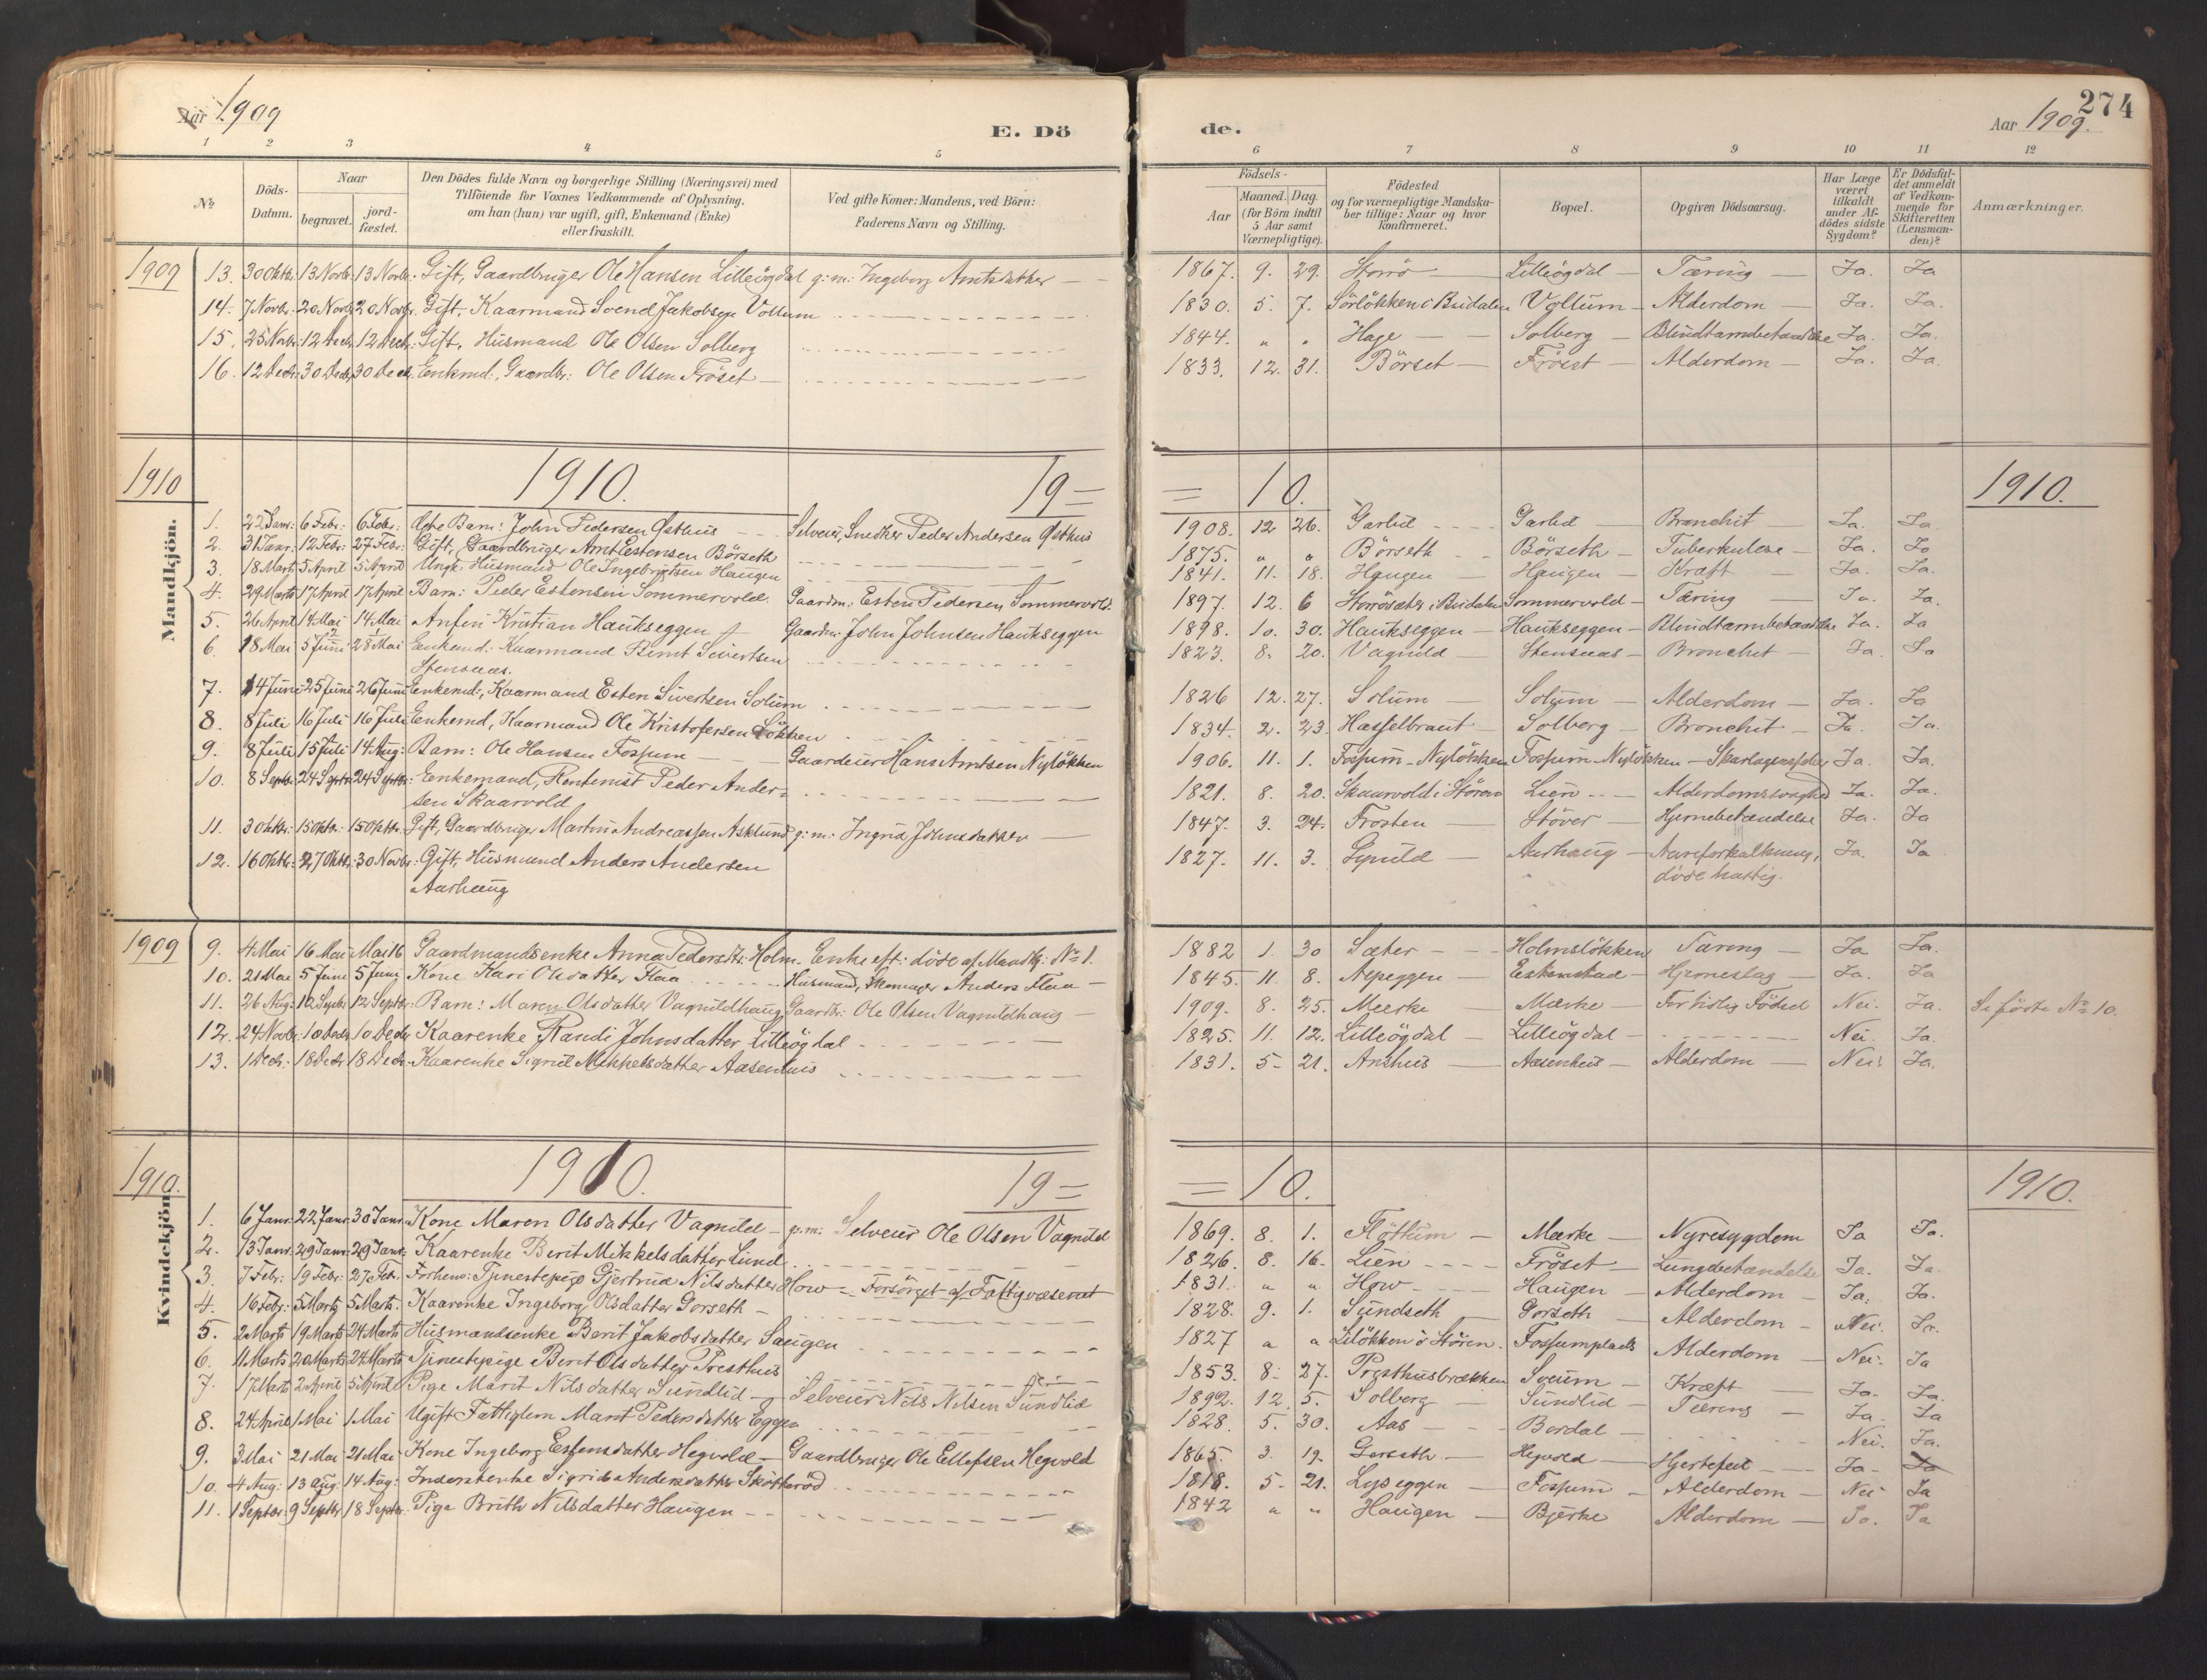 Aar 1909
E. Dö
de.
Aar 1909.
274
1 2 3 4 5 6 7 8 9 10 11 12
No
Döds-Datum.
Naar
begravet. jord-fæstet.
Den Dödes fulde Navn og borgerlige Stilling (Næringsvei) med
Tilföiende for Voxnes Vedkommende af Oplysning.
om han (hun) var ugift, gift, Enkemand (Enke)
eller fraskilt.
Ved gifte Koner: Mandens, ved Börn:
Faderens Navn og Stilling.
Födsels-
Aar
Maaned. Dag.
(for Börn indtil
5 Aar samt
Værnepligtige).
Födested
og for værnepligtige Mandska-
ber tillige: Naar og hvor
konfirmeret.
Bopæl.
Opgiven Dödsaarsag.
Har Læge
været
tilkaldt
under Af-
dödes sidste
Sygdom?
Er Dödsfal-
det anmeldt
af Vedkom-
mende for
Skifteretten
(Lensman-
den)?
Anmærkninger.
1909 13. 30 Oktbr: 13 Novbr: 13 Novbr: Gift, Gaardbruger Ole Hansen Lilleögdal g: m: Ingeborg Arntsdatter 1867. 9. 29. Storrö Lilleögdal Tæring Ja. Ja
14. 7 Novbr: 20 Novbr 20 Novbr. Gift, Kaarmand Svend Jakobsen Vollum 1830. 5. 7. Sörlökken i Budalen Vollum Alderdom Ja. Ja.
15. 25 Novbr: 12 Decbr: 12 Decbr: Gift, Husmand Ole Olsen Solberg 1844. " " Hage Solberg Blindtarmbetændelse Ja. Ja.
16. 12 Decbr: 30 Decbr. 30 Decbr. Enkemd., Gaardbr: Ole Olsen Fröset 1833. 12. 31. Börset Fröset Alderdom Ja. Ja.
1910 1910. 19= =10. 1910.
Mandkjön.
1. 22 Janr: 6 Febr: 6 Febr: Barn: John Pedersen Østhus Selveier, Snedker Peder Andersen Østhus 1908. 12 26. Garlid Garlid Bronchit Ja. Ja.
2. 31 Janr. 12 Febr: 27 Febr: Gift, Gaardbruger Arnt Estensen Börseth 1875. " " Börseth Börseth Tuberkulose Ja. Ja
3. 18 Marts 5 April 5 April Ungk. Husmand Ole Ingebrigtsen Haugen 1841. 11. 18. Haugen Haugen Kræft Ja. Ja.
4. 29 Marts 17 April 17 April Barn: Peder Estensen Sommervold. Gaardm: Esten Pedersen Sommervold. 1897. 12. 6 Storrösæter i Budalen Sommervold Tæring Ja. Ja.
5. 26 April 14 Mai 14 Mai Anfin Kristian Haukseggen Gaardm: John Johnsen Haukseggen 1898. 10. 30. Haukseggen Haukseggen Blindtarmbetændelse Ja. Ja
6. 18 Mai 5 Juni 28 Mai Enkemd: Kaarmand Bernt Sivertsen
Stensaas. 1823. 8. 20. Vagnild Stensaas Bronchit Ja. Ja
7. 14 Juni 25 Juni 26 Juni Enkemd:, Kaarmand Esten Sivertsen Solum 1826 12. 27. Solum Solum Alderdom Ja. Ja
8. 8 Juli 16 Juli 16 Juli Enkemd, Kaarmand Ole Kristofersen Lökken 1834. 2. 23 Hasselbraut Solberg Bronchit Ja. Ja.
9. 8 Juli 15 Juli 14 Aug: Barn: Ole Hansen Fossum Gaardeier Hans Arntsen Nylökken 1906. 11. 1. Fossum-Nylökken Fossum-Nylökken Skarlagensfeber Ja. Ja.
10. 8 Septbr 24 Septbr 24 Septbr: Enkemand, Rentenist Peder Ander-
sen Skaarvold 1821. 8. 20. Skaarvold i Stören Lien Alderdomssvaghed Ja. Ja.
11. 3 Oktbr: 15 Oktbr. 15 Oktbr. Gift, Gaardbruger Martin Andreassen Asklund g: m: Ingrid Johnsdatter 1847. 3. 24. Frosten Stöver Hjernebetændelse Ja. Ja
12. 16 Oktbr: 27 Oktbr: 30 Novbr: Gift, Husmand Anders Andersen
Aarhaug 1827. 11. 3. Aarhaug Aareforkalkning,
döde hastig. Ja. Ja
1909 9. 4 Mai 16 Mai Mai 16 Gaardmandsenke Anna Pedersdtr: Holm. Enke eft: döde af Mandkj: No 1. 1882 1. 30 Sæter Holmslökken Tæring Ja Ja.
10. 21 Mai 5 Juni 5 Juni Kone Kari Olsdatter Flaa Husmand, Skomager Anders Flaa 1845. 11. 8. Aspeggen Estenstad Hjerneslag Ja. Ja
11. 26 Aug: 12 Septbr 12 Septbr: Barn: Maren Olsdatter Vagnildhaug Gaardbr: Ole Olsen Vagnildhaug 1909. 8. 25. Mærke Mærke For tidlig Födsel Nei. Ja. Se födte No 10.
12. 24 Novbr. 10 Decbr 10 Decbr Kaarenke Randi Johnsdatter Lilleögdal 1825. 11. 12. Lilleögdal Lilleögdal Nei. Ja.
13. 1 Decbr: 18 Decbr 18 Decbr. Kaarenke Sigrid Mikkelsdatter Aasenhus 1831. 5. 21. Aashus Aasenhus Alderdom Nei. Ja.
1910. 1910. 19= =10. 1910.
Kvindekjön.
1. 6 Janr. 22 Janr. 30 Janr. Kone Maren Olsdatter Vagnild g. m: Selveier Ole Olsen Vagnild 1869. 8. 1. Flöttum Mærke Nyresygdom Ja Ja.
2. 13 Janr. 29 Janr. 29 Janr: Kaarenke Berit Mikkelsdatter Lund 1826. 8. 16. Lien Fröset Lungebetændelse Ja. Ja
3. 7 Febr: 19 Febr: 27 Febr. Forhenv: Tjenestepige Gjertrud Nilsdatter How Forsörget af Fattigvæsenet 1831. " " How Haugen Alderdom Ja. Ja.
4. 16 Febr: 5 Marts 5 Marts. Kaarenke Ingeborg Olsdatter Gorseth 1828. 9. 1. Sundseth Gorseth Alderdom Nei. Ja.
5. 2 Marts 19 Marts 24 Marts Husmandsenke Berit Jakobsdatter Saugen 1827 " " Lilökken i Stören. Fossumplads Alderdom Nei. Ja
6. 11 Marts 20 Marts 24 Marts Tjenestepige Berit Olsdatter Presthus 1853. 8. 27. Presthusbrækken Sveum Kræft Ja. Ja.
7. 17 Marts 2 April 5 April Pige Marit Nilsdatter Sundlid Selveier Nils Nilsen Sundlid 1892. 12. 5. Solberg Sundlid Tæring Ja. Ja
8. 24 April 1 Mai 1 Mai Ugift Fattiglem Marit Pedersdatter Eggen 1828. 5. 30. Aas Bordal Nei. Ja.
9. 3 Mai 21 Mai 21 Mai Kone Ingeborg Estensdatter Hegvold Gaardbruger Ole Ellefsen Hegvold 1865. 3. 19. Gorseth Hegvold Hjertefeil Ja. Ja
10. 4 Aug: 13 Aug: 14 Aug: Inderstenke Sigrid Andersdatter Skötteröd 1818. 5. 21. Lyseggen Fossum Alderdom Nei Ja
11. 1 Septbr. 9 Septbr 18 Septbr. Pige Brith Nilsdatter Haugen 1842 " " Haugen Bjerke Alderdom Ja. Ja